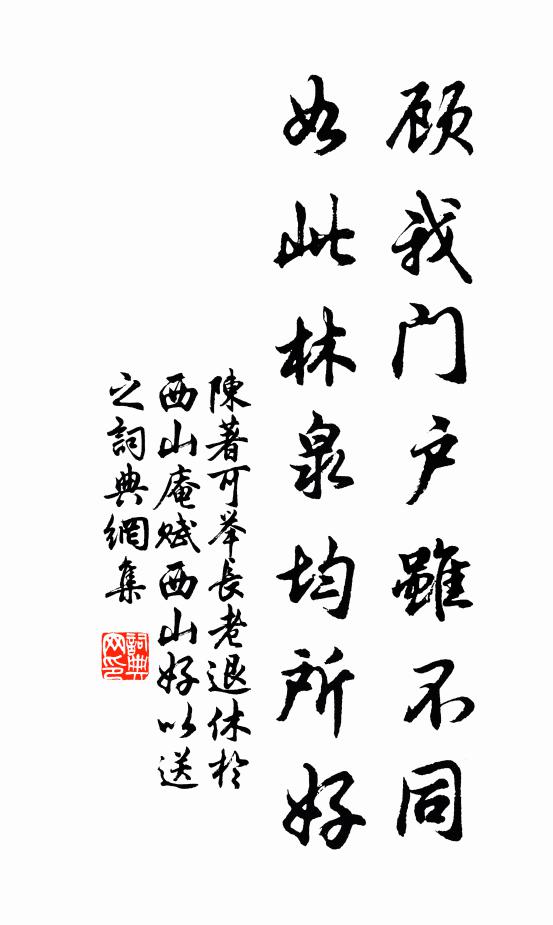 顾我门户雖不同
如此林泉均所好
陳著可举長老退休於
西山庵赋西山好以送
之詞典網集
詞典网印